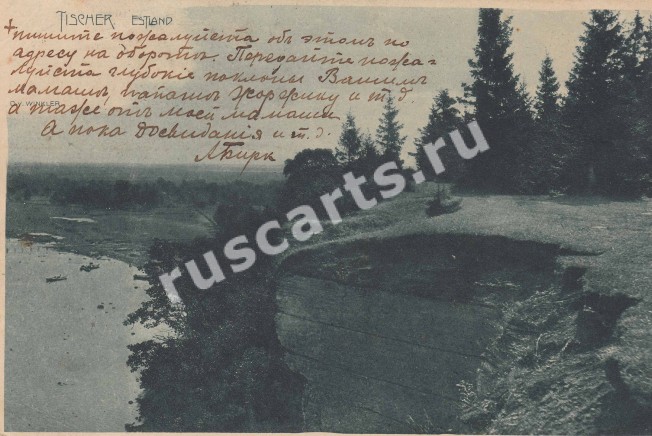 TISCHER ESTLAND
+ пишите пожалуйста объ этомъ по
адресу на оборотѣ. Передайте пожа-
луйста глубокіе поклоны Вашимъ
мамашѣ, папашѣ Жоржику и т.д.
C. v. WINKLER
а также отъ моей мамаши
А пока досвиданія и т.д.
ruscarts.ru